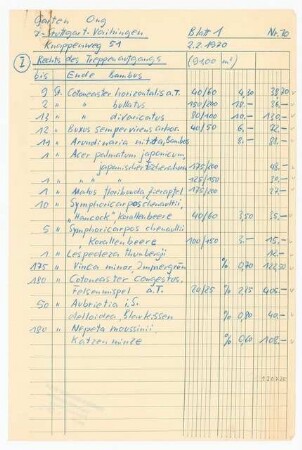 Garten Ong Blatt 1 Nr. 70
7-Stuttgart-Vaihingen
Knappenweg 51 2.2.1970
I Rechts des Treppenaufgangs (9100 m²)
bis Ende Bambus
9 St. Cotoneaster horizontalis a.T. 40/60 4.30 38.70
2 " " bullatus 18.- 36.-
13 " " divaricatus 80/100 10.- 130.-
12 " Buxus sempervirens arbor. 40/50 6.- 72.-
11 " Arundinaria nitida, Bambus 8.- 88.-
1 " Acer palmatum japonicum,
japanischer 175/200 148.-
1 " " " 125/150
1 " Malus floribunda, Zierapfel 175/200 27.-
10 " Symphoricarpos chenaultii
"Hancock" Korallenbeere 40/60 3,50 35.-
5 " Symphoricarpos chenaultii
Korallenbeere 100/150 3.- 15.-
1 " Lespedeza thunbergii 12.-
175 " Vinca minor, Immergrün % 0,70 122,50
180 " Cotoneaster congestus,
Felsenmispel a.T. 20/25 2,25 405.-
50 " Aubrietia i.S.
deltoidea, Blaukissen % 0,80 40.-
180 " Nepeta mussinii,
Katzenminze % 0,60 108.-